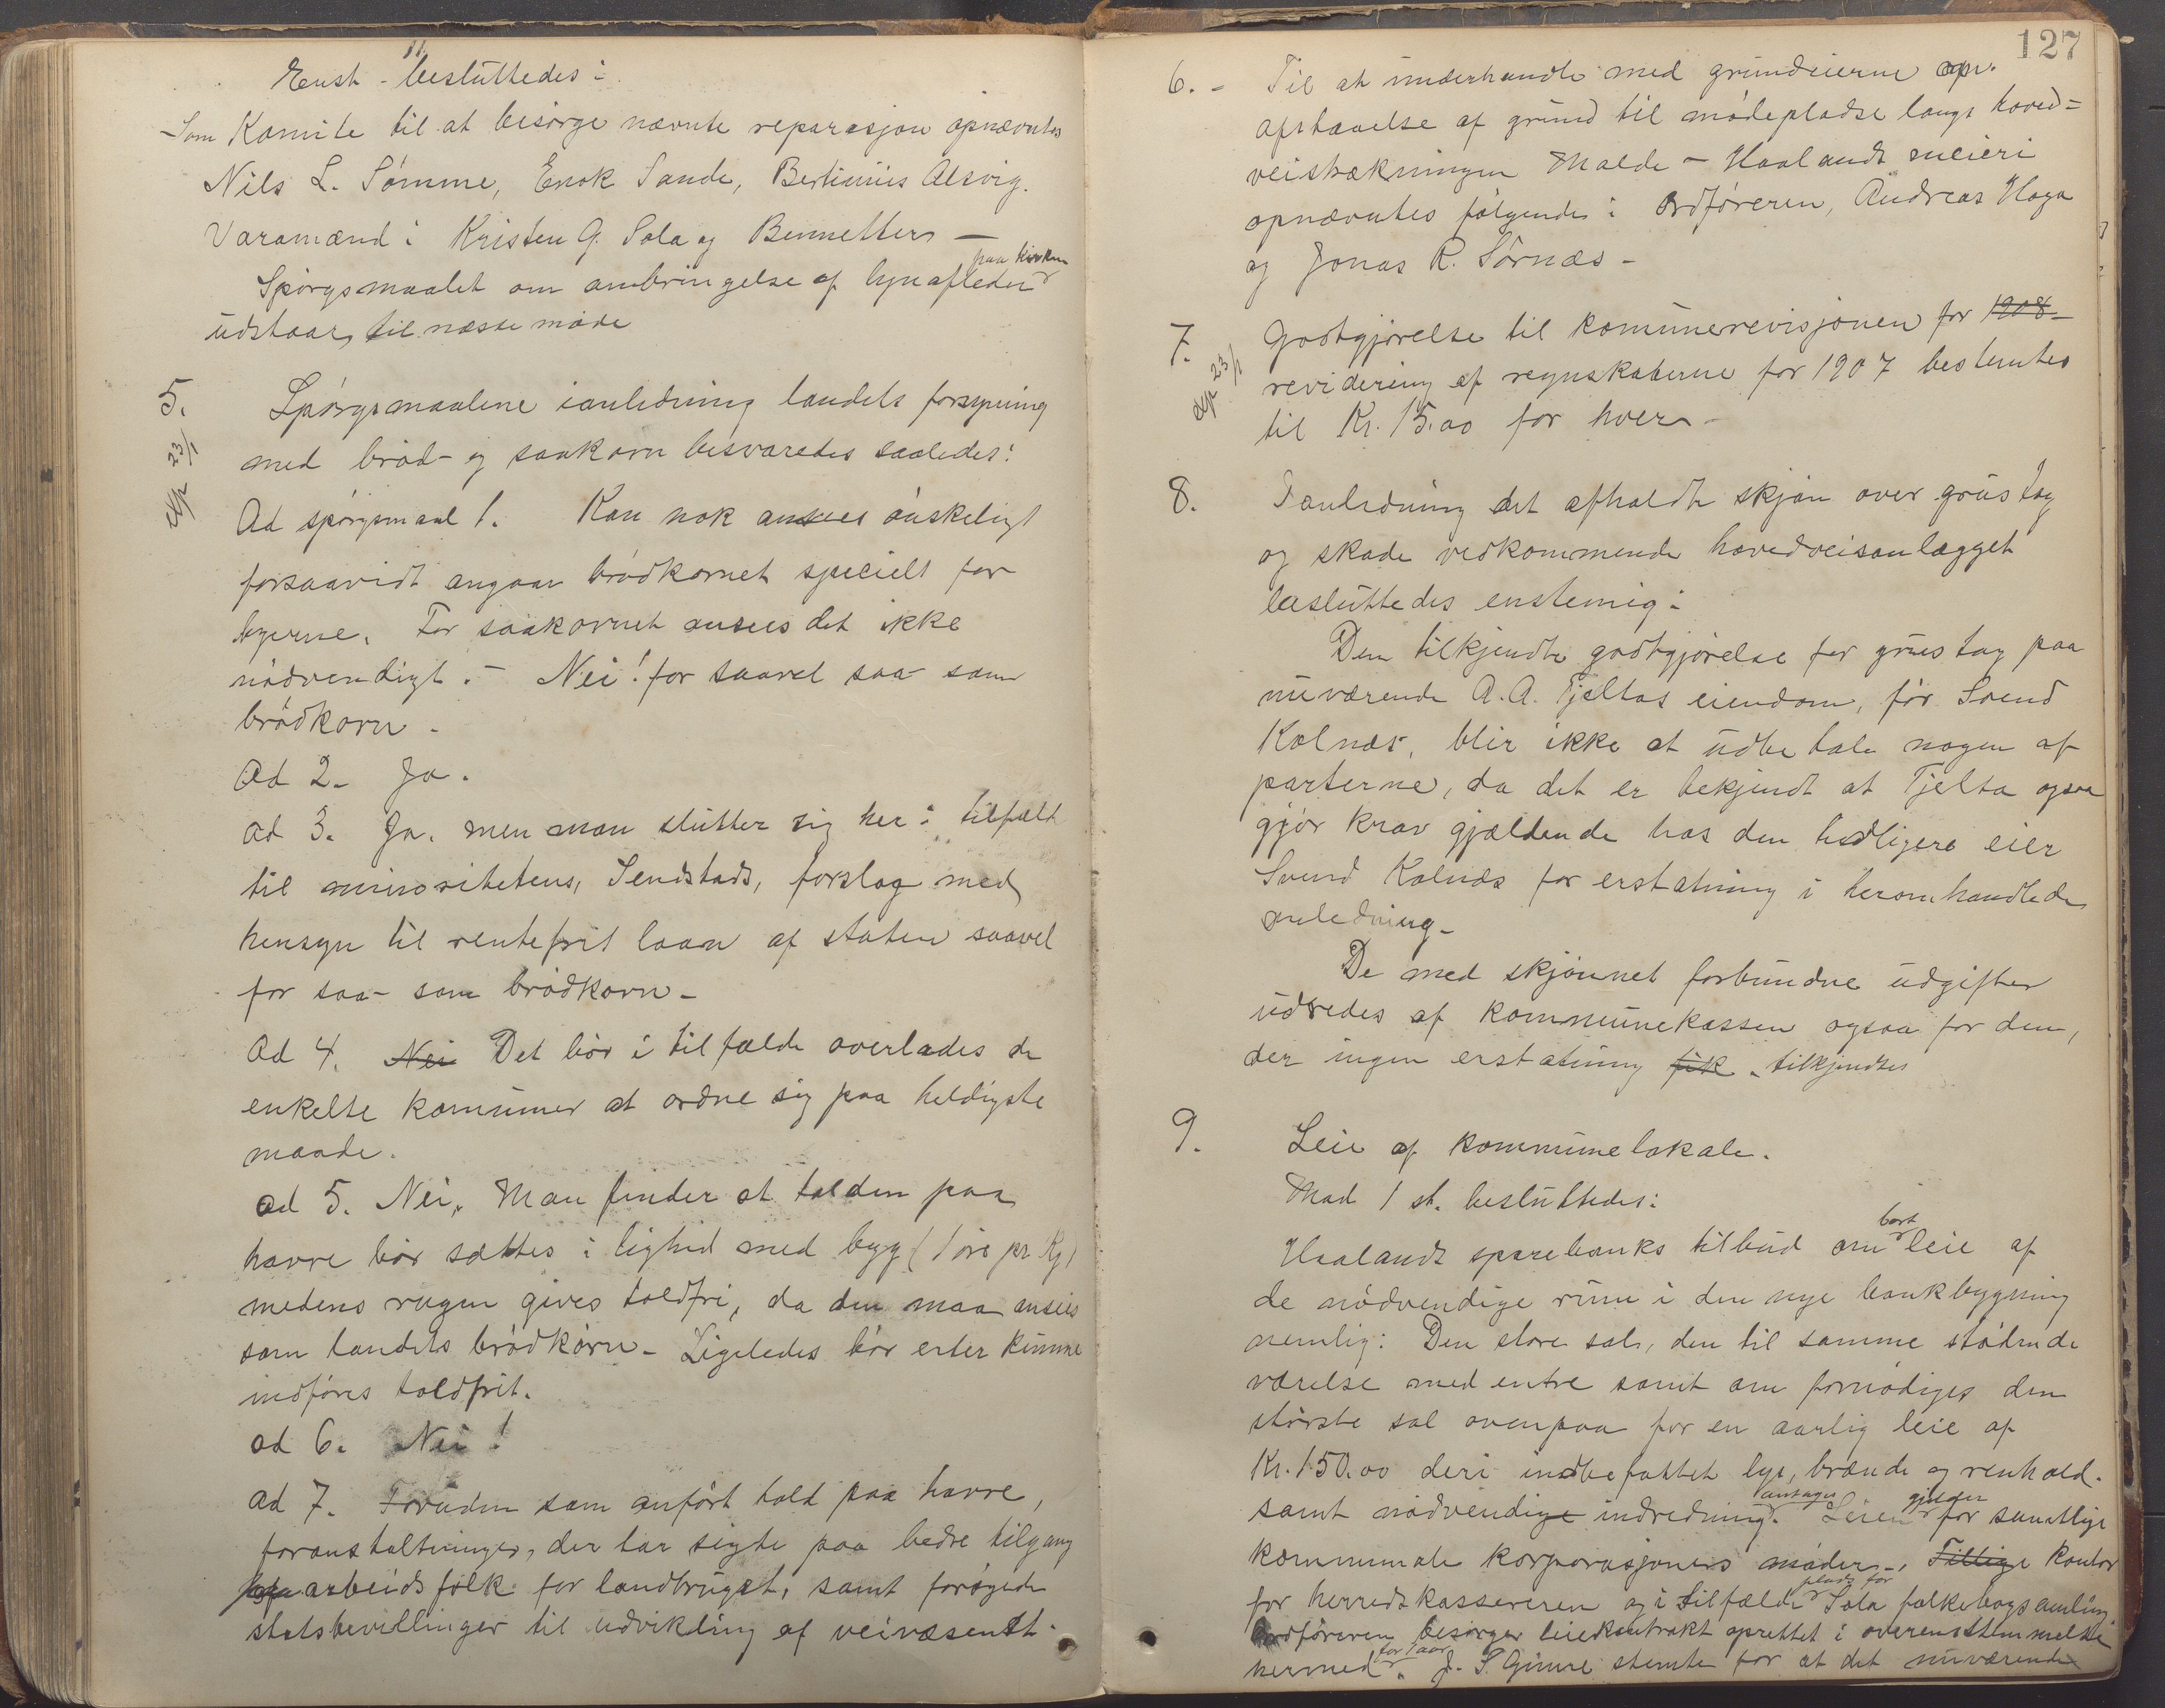 Enst. besluttedes:
Som Komite til at besørge nævnte reparasjon opnævntes
Nils L. Sømme, Enok Sande, Bertinius Alsvig.
Varamænd: Kristen G. Sola og Bennetter —
paa kirken
Spørgsmaalet om anbringelse af lynafleder
udstaar til næste møde
5.
exp 23/1
Spørgsmaalene ianledning landets forsyning
med brød- og saakorn besvaredes saaledes:
Ad spørgsmaal 1. Kan nok ansees ønskeligt
forsaavidt angaar brødkornet specielt for
byerne. For saakornet ansees det ikke
nødvendigt. — Nei! for saavel saa- som
brødkorn.
Ad 2. Ja.
ad 3. Ja. men man slutter sig her i tilfælde
til minoritetens, Sendstads, forslag med
hensyn til rentefrit laan af staten saavel
for saa- som brødkorn —
Ad 4. Nei Det bør i tilfælde overlades de
enkelte komuner at ordne sig paa heldigste
maade.
ad 5. Nei. Man finder at tolden paa
havre bør sættes i lighed med byg (1 øre pr Kg)
medens rugen gives toldfri, da den maa ansees
som landets brødkorn — Ligeledes bør erter kunne
indføres toldfrit.
ad 6. Nei!
ad 7. Foruden som anført told paa havre,
foranstaltninger, der tar sigte paa bedre tilgang
paa arbeidsfolk for landbruget, samt forøgede
statsbevillinger til udvikling af veivæsenet.
127
6. - Til at underhandle med grundeierne ang.
afstaaelse af grund til mødepladse langs hoved=
veistrækningen Malde — Haalands meieri
opnævntes følgende: Ordføreren, Andreas Haga
og Jonas R. Sørnæs —
7.
exp 23/1
Godtgjørelse til komunerevisjonen for 1908
revidering af regnskaberne for 1907 bestemtes
til Kr. 15.00 for hver —
8. Ianledning det afholdte skjøn over grustag
og skade vedkommende hovedveisanlægget
besluttedes enstemig:
Den tilkjendte godtgjørelse for grustag paa
nuværende A. A. Tjeltas eiendom, før Svend
Kolnæs, blir ikke at udbetale nogen af
parterne, da det er bekjendt at Tjelta ogsaa
gjør krav gjældende hos den tidligere eier
Svend Kolnæs for erstatning i heromhandlede
anledning —
De med skjønnet forbundne udgifter
udredes af kommunekassen ogsaa for dem,
der ingen erstatning fik tilkjendtes
9. Leie af kommunelokale.
Mod 1 st. besluttedes:
bort
Haalands sparebanks tilbud om leie af
de nødvendige rum i den nye bankbygning
nemlig: Den store sal, den til samme stødende
værelse med entre samt om fornødiges den
største sal ovenpaa for en aarlig leie af
Kr. 150.00 deri indbefattet lys, brænde og renhold.
antages gjælder
samt nødvendige indredning. Leien for samtlige
kommunale korporasjoners møder —, Tillige kontor
plads for
for herredskassereren og i tilfælde Sola folkebogsamling.
Ordføreren besørger leiekontrakt oprettet i overensstemmelse
for 1 aar
hermed. J. S. Gimre stemte for at det nuværende